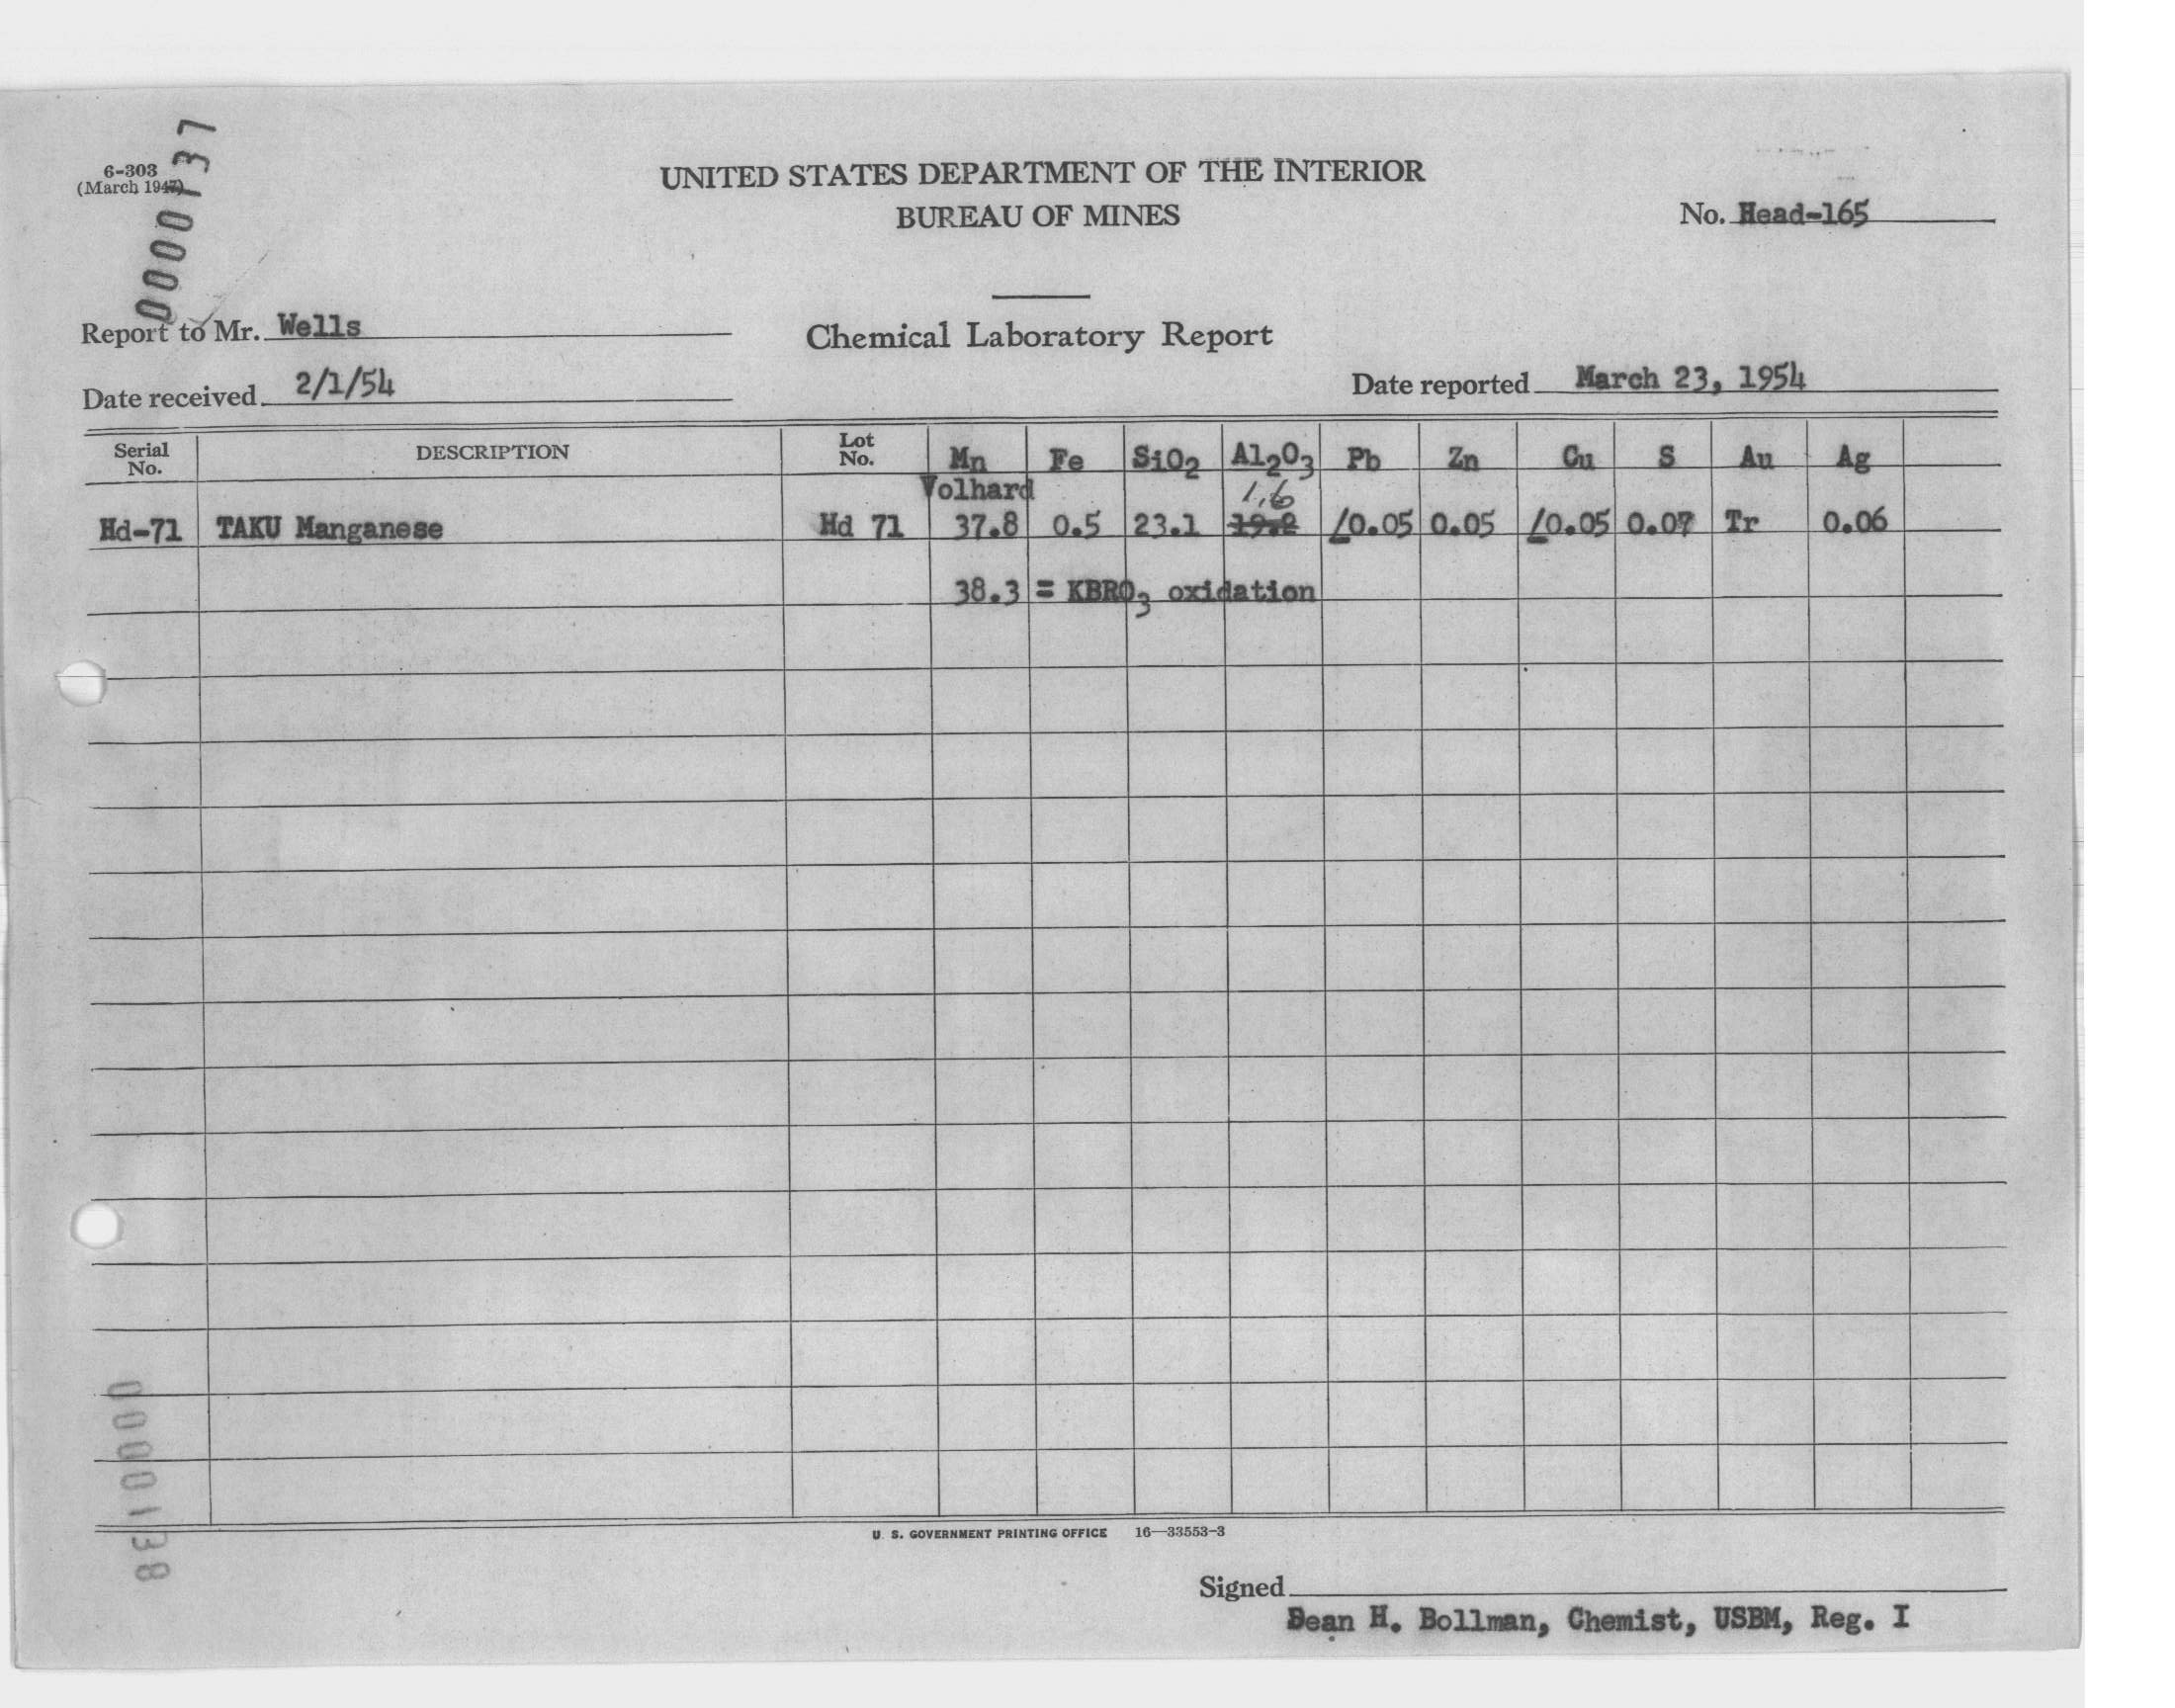 0000137
6-303
(March 1947)
UNITED STATES DEPARTMENT OF THE INTERIOR
BUREAU OF MINES
No. Head-165
Report to Mr. Wells
Chemical Laboratory Report
Date received 2/1/54
Date reported March 23, 1954
Serial No. DESCRIPTION Lot No. Mn Fe SiO2 Al2O3 Pb Zn Cu S Au Ag
Volhard 1.6
Hd-71 TAKU Manganese Hd 71 37.8 0.5 23.1 19.2 /0.05 0.05 /0.05 0.07 Tr 0.06
38.3 = KBRO3 oxidation
0000138
U. S. GOVERNMENT PRINTING OFFICE 16—33553-3
Signed
Dean H. Bollman, Chemist, USBM, Reg. I